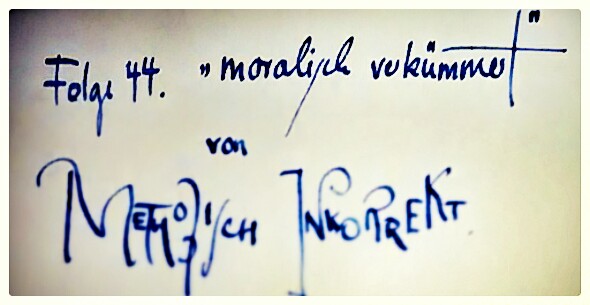 Folge 44. „moralisch verkümmert"
von
METHODISCH INKORREKT